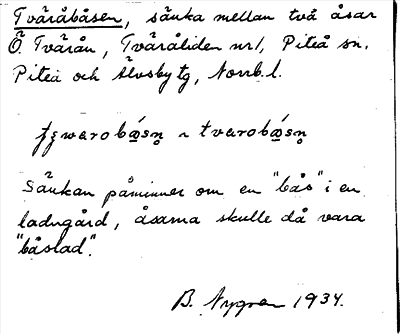 Tväråbåsen, sänka mellan två åsar
Ö. Tvärån, Tväråliden nr 1, Piteå sn.
Piteå och Älvsby tg, Norrb. l.
~ tvarobå̱sn̥
Sänkan påminner om en "bås" i en
ladugård, åsarna skulle då vara
"båslad".
B. Nygren 1934.